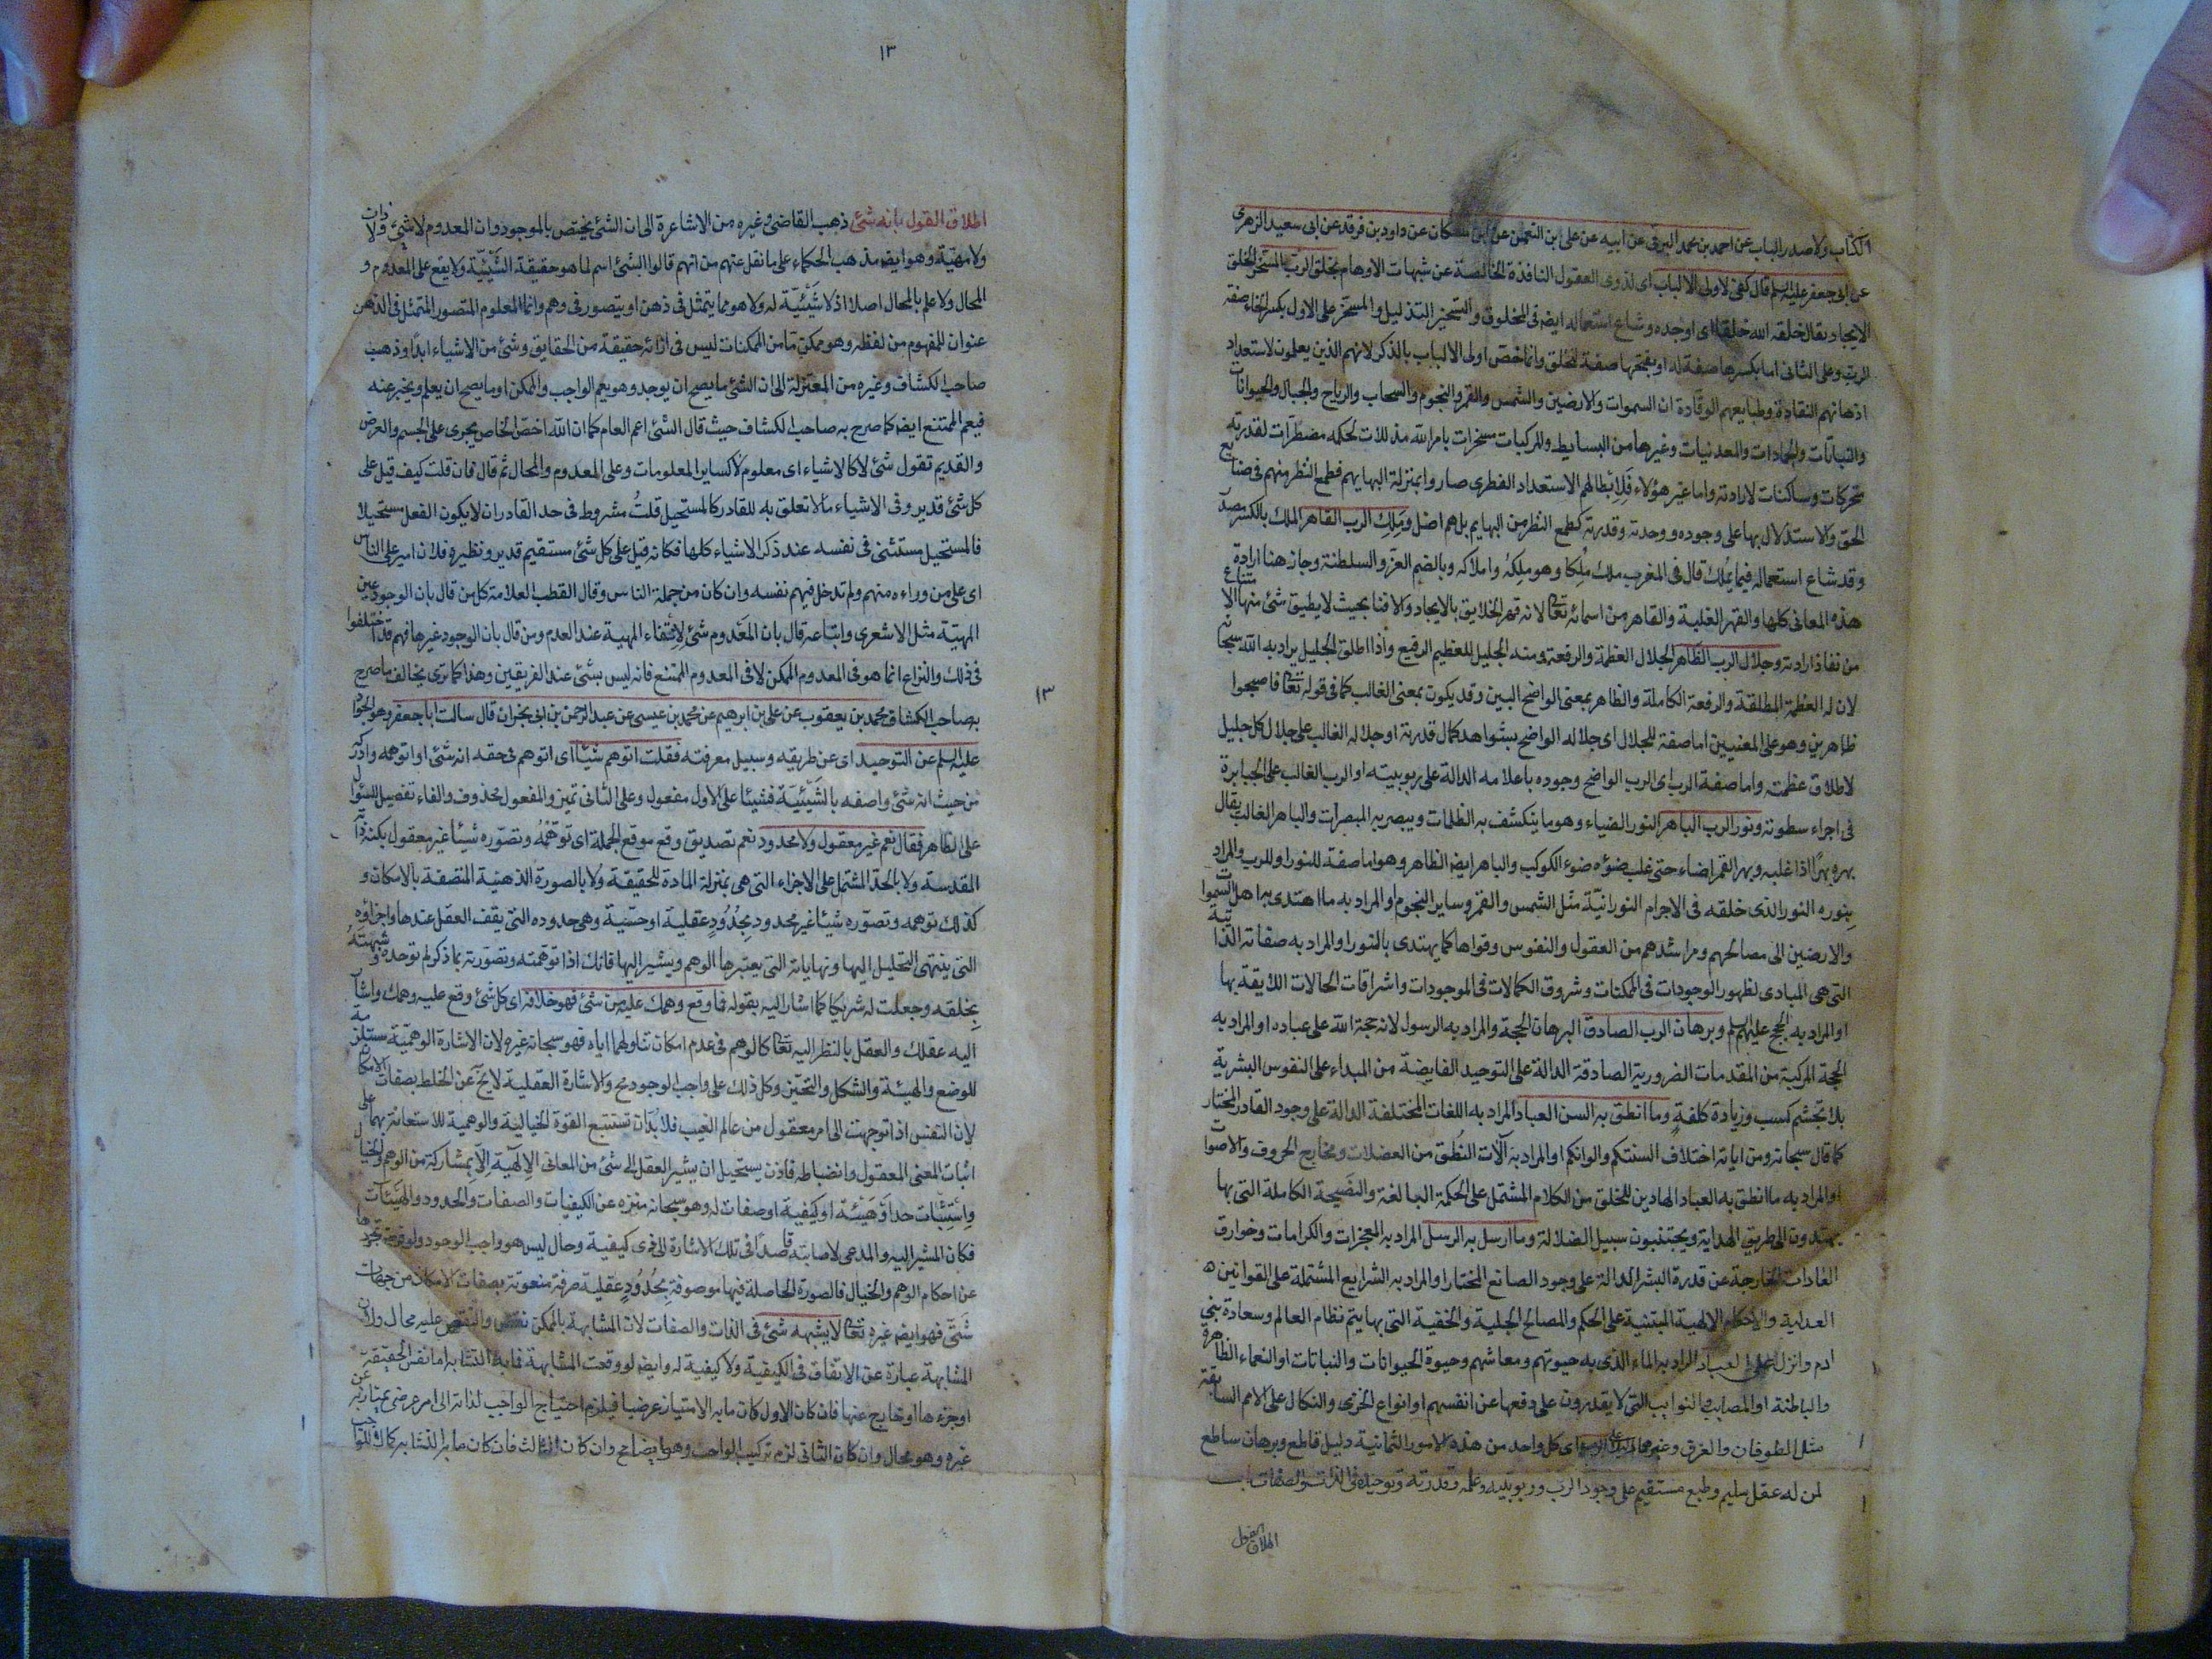 الكتاب ولا صدر الباب عن احمد بن محمد البرقى عن ابيه عن على بن النعمن عن ابن مسكان عن داود بن فرقد عن ابى سعيد الزهرى
عن ابى جعفر عليه السلم قال كفى لاولى الالباب اى لذوى العقول النافذة الخالصة عن شبهات الاوهام بخلق الرب المسخر الخلق
الايجاد يقال خلقه الله خلقا اى اوجده وشاع استعماله ايضا فى المخلوق والتسخير التذليل والمسخر على الاول بكسر الخاء صفة
الرب وعلى الثانى اما بكسرها صفة له او بفتحها صفة للخلق وانما خص اولى الالباب بالذكر لانهم الذين يعلمون لاستعداد
اذهانهم النقادة وطبايعهم الوقادة ان السموات والارضين والشمس والقمر والنجوم والسحاب والرياح والجبال والحيوانات
والنباتات والجمادات والمعدنيات وغيرها من البسايط والمركبات مسخرات بامر الله مذللات لحكمه مضطرات لقدرته
متحركات وساكنات لارادته واما غير هؤلاء فلابطالهم الاستعداد الفطرى صاروا بمنزلة البهايم فطمع النظر منهم فى صنايع
الحق والاستدلال بها على وجوده ووحدته وقدرته كطمع النظر من البهايم بل هم اضل وملك الرب القاهر الملك بالكسر مصدر
وقد شاع استعماله فيما يملك قال فى المغرب ملك ملكا وهو ملكه واملاكه وبالضم العز والسلطنة وجاز هنا ارادة
هذه المعانى كلها والقهر الغلبة والقاهر من اسمائه تعالى لانه قهر الخلايق بالايجاد والافناء بحيث لا يطيق شئ منها الامتناع
من نفاذ ارادته وجلال الرب الظاهر الجلال العظمة والرفعة ومنه الجليل للعظيم الرفيع واذا اطلق الجليل يراد به الله سبحانه
لان له العظمة المطلقة والرفعة الكاملة والظاهر بمعنى الواضح البين وقد يكون بمعنى الغالب كما فى قوله تعالى فاصبحوا
ظاهرين وهو على المعنيين اما صفة للجلال اى جلاله الواضح بشواهد كمال قدرته او جلاله الغالب على جلال كل جليل
لاطلاق عظمته واما صفة الرب اى الرب الواضح وجوده باعلامه الدالة على ربوبيته او الرب الغالب على الجبابرة
فى اجراء سطوته ونور الرب الباهر النور الضياء وهو ما ينكشف به الظلمات ويبصر به المبصرات والباهر الغالب يقال
بهره بهرا اذا غلبه وبهر القمر اضاء حتى غلب ضوءه ضوء الكوكب والباهر ايضا الظاهر وهو اما صفة للنور او للرب والمراد
بنوره النور الذى خلقه فى الاجرام النورانية مثل الشمس والقمر وساير النجوم والمراد به ما اهتدى به اهل السموات
والارضين الى مصالحهم ومراشدهم من العقول والنفوس وقواها كما يهتدى بالنور او المراد به صفاته الذاتية
التى هى المبادى لظهور الوجودات فى الممكنات وشروق الكمالات فى الموجودات واشراقات الحالات اللايقة بها
او المراد به الحجج عليهم السلم وبرهان الرب الصادق البرهان الحجة والمراد به الرسول لانه حجة الله على عباده او المراد به
الحجة المركبة من المقدمات الضرورية الصادقة الدالة على التوحيد الفايضة من المبداء على النفوس البشرية
بلا تجشم كسب وزيادة كلفة وما انطق به السن العباد المراد به اللغات المختلفة الدالة على وجود القادر المختار
كما قال سبحانه ومن اياته اختلاف السنتكم والوانكم او المراد به آلات النطق من العضلات ومخارج الحروف والاصوات
او المراد به ما انطق به العباد الهادين للخلق من الكلام المشتمل على الحكمة البالغة والنصيحة الكاملة التى بها
يهتدون الى طريق الهداية ويجتنبون سبيل الضلالة وما ارسل به الرسل المراد به المعجزات والكرامات وخوارق
العادات الخارجة عن قدرة البشر الدالة على وجود الصانع المختار او المراد به الشرايع المشتملة على القوانين
العدلية والاحكام الالهية المبتنية على الحكم والمصالح الجلية والخفية التى بها يتم نظام العالم وسعادة بنى
ادم وانزل على العباد المراد به الماء الذى به حيوتهم ومعاشهم وحيوة الحيوانات والنباتات او النعماء الظاهرة
والباطنة او المصايب والنوايب التى لا يقدرون على دفعها عن انفسهم او انواع الخزى والنكال على الامم السابقة
مثل الطوفان والغرق وغيرهما دليلا على الرب اى كل واحد من هذه الامور الثمانية دليل قاطع وبرهان ساطع
لمن له عقل سليم وطبع مستقيم على وجود الرب وربوبيته وعلمه وقدرته وتوحيده فى الذات والصفات باب
اطلاق القول
١٣
اطلاق القول بانه شئ ذهب القاضى وغيره من الاشاعرة الى ان الشئ يختص بالموجود وان المعدوم لا شئ ولا ذات
ولا مهية وهو ايضا مذهب الحكماء على ما نقل عنهم من انهم قالوا الشئ اسم لما هو حقيقة الشيئية ولا يقع على المعدوم و
المحال ولا علم بالمحال اصلا اذ لا شيئية له ولا هو مما يتمثل فى ذهن او يتصور فى وهم وانما المعلوم المتصور المتمثل فى الذهن
عنوان للمفهوم من لفظه وهو ممكن ما من الممكنات ليس فى ازائه حقيقة من الحقايق وشئ من الاشياء ابدا وذهب
صاحب الكشاف وغيره من المعتزلة الى ان الشئ ما يصح ان يوجد وهو يعم الواجب والممكن او ما يصح ان يعلم ويخبر عنه
فيعم الممتنع ايضا كما صرح به صاحب الكشاف حيث قال الشئ اعم العام كما ان الله اخص الخاص يجرى على الجسم والعرض
والقديم تقول شئ لا كالاشياء اى معلوم لا كساير المعلومات وعلى المعدوم والمحال ثم قال فان قلت كيف قيل على
كل شئ قدير وفى الاشياء ما لا تعلق به للقادر كالمستحيل قلت مشروط فى حد القادر ان لا يكون الفعل مستحيلا
فالمستحيل مستثنى فى نفسه عند ذكر الاشياء كلها فكانه قيل على كل شئ مستقيم قدير ونظيره فلان امير على الناس
اى على من وراءه منهم ولم تدخل فيهم نفسه وان كان من جملة الناس وقال القطب العلامة كل من قال بان الوجود عين
المهية مثل الاشعرى واتباعه قال بان المعدوم شئ لانتفاء المهية عند العدم ومن قال بان الوجود غيرها فهم قد اختلفوا
فى ذلك والنزاع انما هو فى المعدوم الممكن لا فى المعدوم الممتنع فانه ليس بشئ عند الفريقين وهذا كما ترى يخالف ما صرح
١٣
به صاحب الكشاف محمد بن يعقوب عن على بن ابرهيم عن محمد بن عيسى عن عبد الرحمن بن ابى نجران قال سالت ابا جعفر وهو الجواد
عليه السلم عن التوحيد اى عن طريقه وسبيل معرفته فقلت اتوهم شيئا اى اتوهم فى حقه انه شئ او اتوهمه وادركه
من حيث انه شئ واصفه بالشيئية فشيئا على الاول مفعول وعلى الثانى تميز والمفعول محذوف والفاء تفصيل للسؤال
على الظاهر فقال نعم غير معقول ولا محدود نعم تصديق وقع موقع الجملة اى توهمه وتصوره شيئا غير معقول بكنه ذاته
المقدسة ولا بالحد المشتمل على الاجزاء التى هى بمنزلة المادة للحقيقة ولا بالصورة الذهنية المتصفة بالامكان و
كذلك توهمه وتصوره شيئا غير محدود بحدود عقلية او حسية وهى حدوده التى يقف العقل عندها واجزاؤه
التى ينتهى التحليل اليها ونهاياته التى يعتبرها الوهم ويشير اليها فانك اذا توهمته وتصورته بما ذكر لم توحده وشبهته
بخلقه وجعلت له شريكا كما اشار اليه بقوله فما وقع وهمك عليه من شئ فهو خلافه اى كل شئ وقع عليه وهمك واشار
اليه عقلك والعقل بالنظر اليه تعالى كالوهم فى عدم امكان تناولهما اياه فهو سبحانه غيره لان الاشارة الوهمية مستلزمة
للوضع والهيئة والشكل والتحيز وكل ذلك على واجب الوجود مح والاشارة العقلية لا يخ عن الخلط بصفات الامكان
لان النفس اذا توجهت الى امر معقول من عالم الغيب فلابد ان تستتبع القوة الخيالية والوهمية للاستعانة بهما على
اثبات المعنى المعقول وانضباطه فاذن يستحيل ان يشير العقل الى شئ من المعانى الالهية الا بمشاركة من الوهم والخيال
واستثبات حد او هيئة او كيفية او صفات له وهو سبحانه منزه عن الكيفيات والصفات والحدود والهيئات
فكان المشير اليه والمدعى لاصابته قاصدا فى تلك الاشارة الى ذى كيفية وحال ليس هو واجب الوجود ولو فرضت تجردها
عن احكام الوهم والخيال فالصورة الحاصلة فيها موصوفة بحدود عقلية صرفة منعوتة بصفات الامكان من جهات
شتى فهو ايضا غيره تعالى لا يشبهه شئ فى الذات والصفات لان المشابهة بالممكن نقص والنقص عليه محال ولان
المشابهة عبارة عن الاتفاق فى الكيفية ولا كيفية له وايضا لو وقعت المشابهة فما به التشابه اما نفس الحقيقة
او جزءها او خارج عنها فان كان الاول كان ما به الامتياز عرضيا فيلزم احتياج الواجب لذاته الى امر عرضى يمتاز به عن
غيره وهو محال وان كان الثانى لزم تركيب الواجب وهو ايضا مح وان كان الثالث فان كان ما به التشابه كمالا للواجب